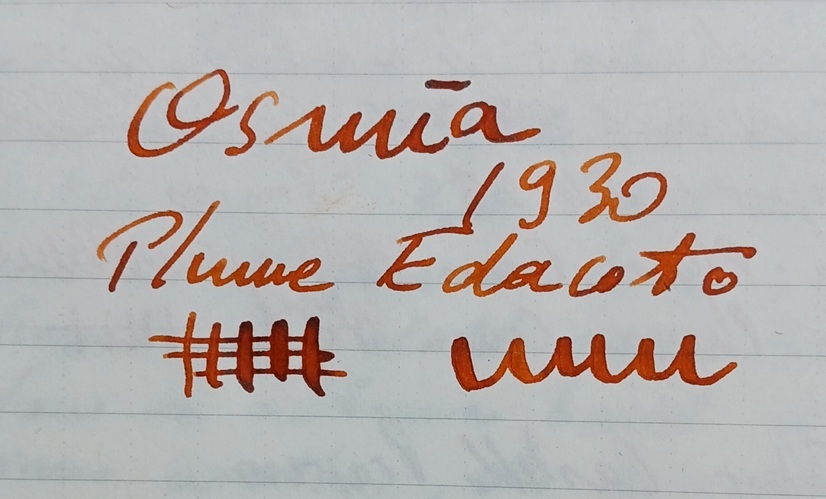 Osmia
1930
Plume Edacoto